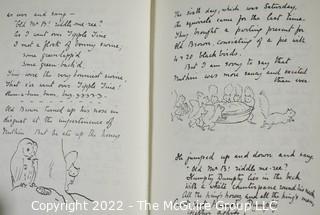 to our and sang -
"Old Mr B! riddle me ree?
As I went over Tipple Tine
I met a flock of bonny swine,
some green lapp'd
some green back'd
They were the very bonniest swine
That e'er went over Tipple Tine!
Hum-a-bum bum, buzz zzzzz -
Old Brown turned up his nose in
disgust at the impertinence of
Nutkin. But he ate up the honey
The sixth day, which was Saturday,
the squirrels came for the last time.
They brought a parting present for
Old Brown, consisting of a pie with
4 & 20 black birds.
But I am sorry to say that
Nutkin was more saucy and excited
than ever.
He jumped up and down and sang
"Old Mr B! riddle me ree?
Humpty Dumpty lies in the beck
With a white counterpane round his neck,
All the king's horses and all the king's men,
Copyright © 2022 - The McGuire Group, LLC